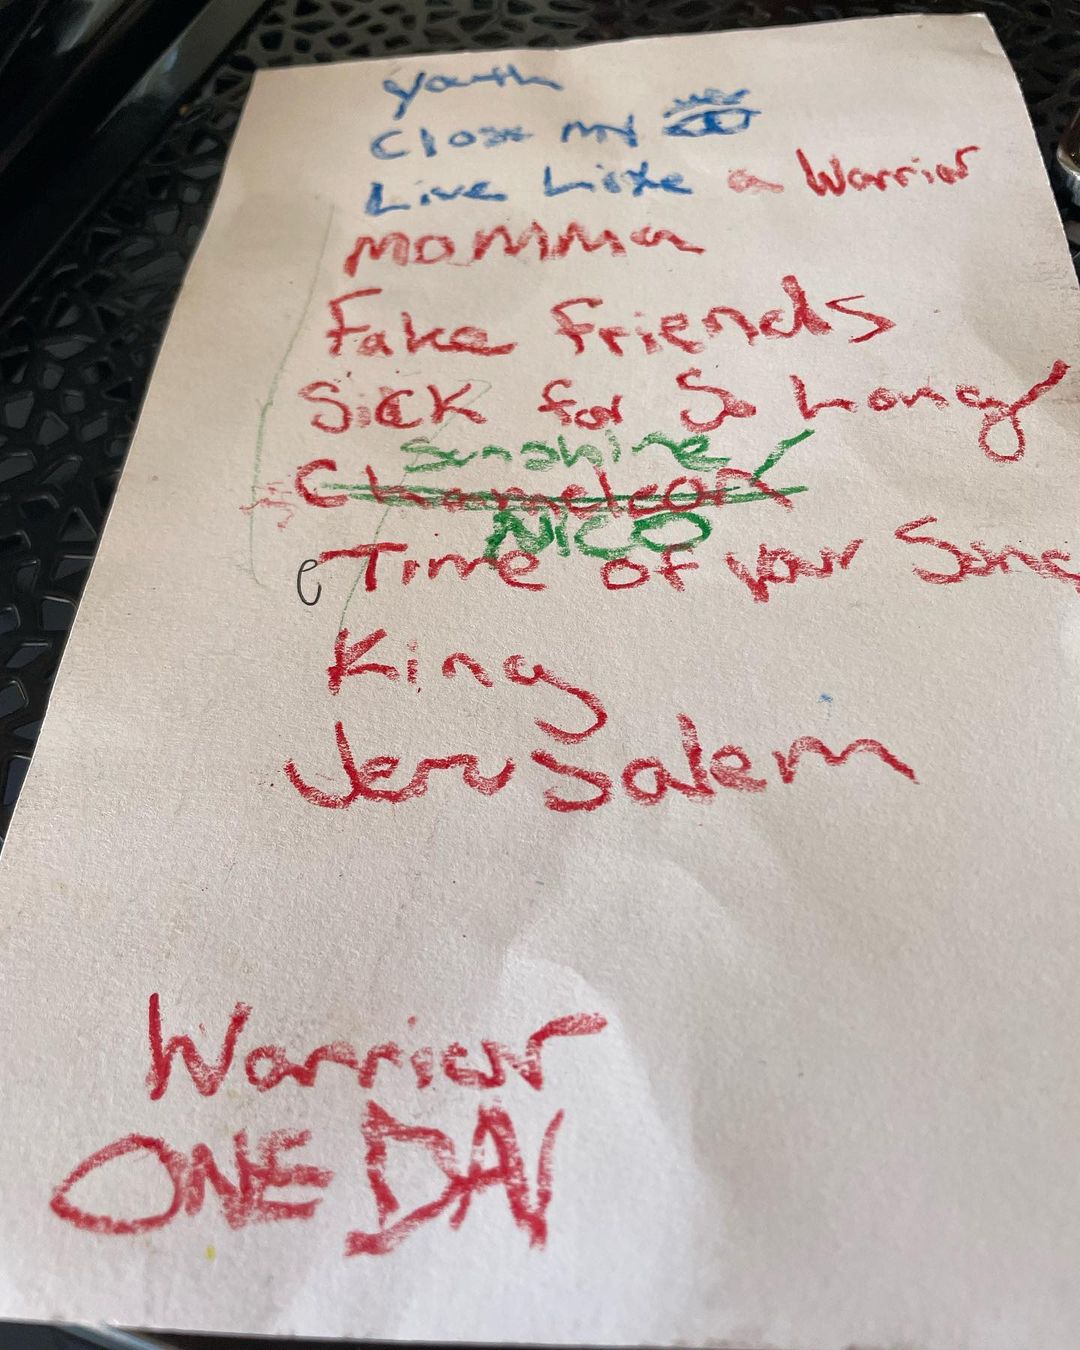 Youth
Close my
Live Like a Warrior
Momma
Fake Friends
Sick for So Long
Sunshine
Chameleon
NICO
Time of your Song
King
Jerusalem
Warrior
ONE DAY